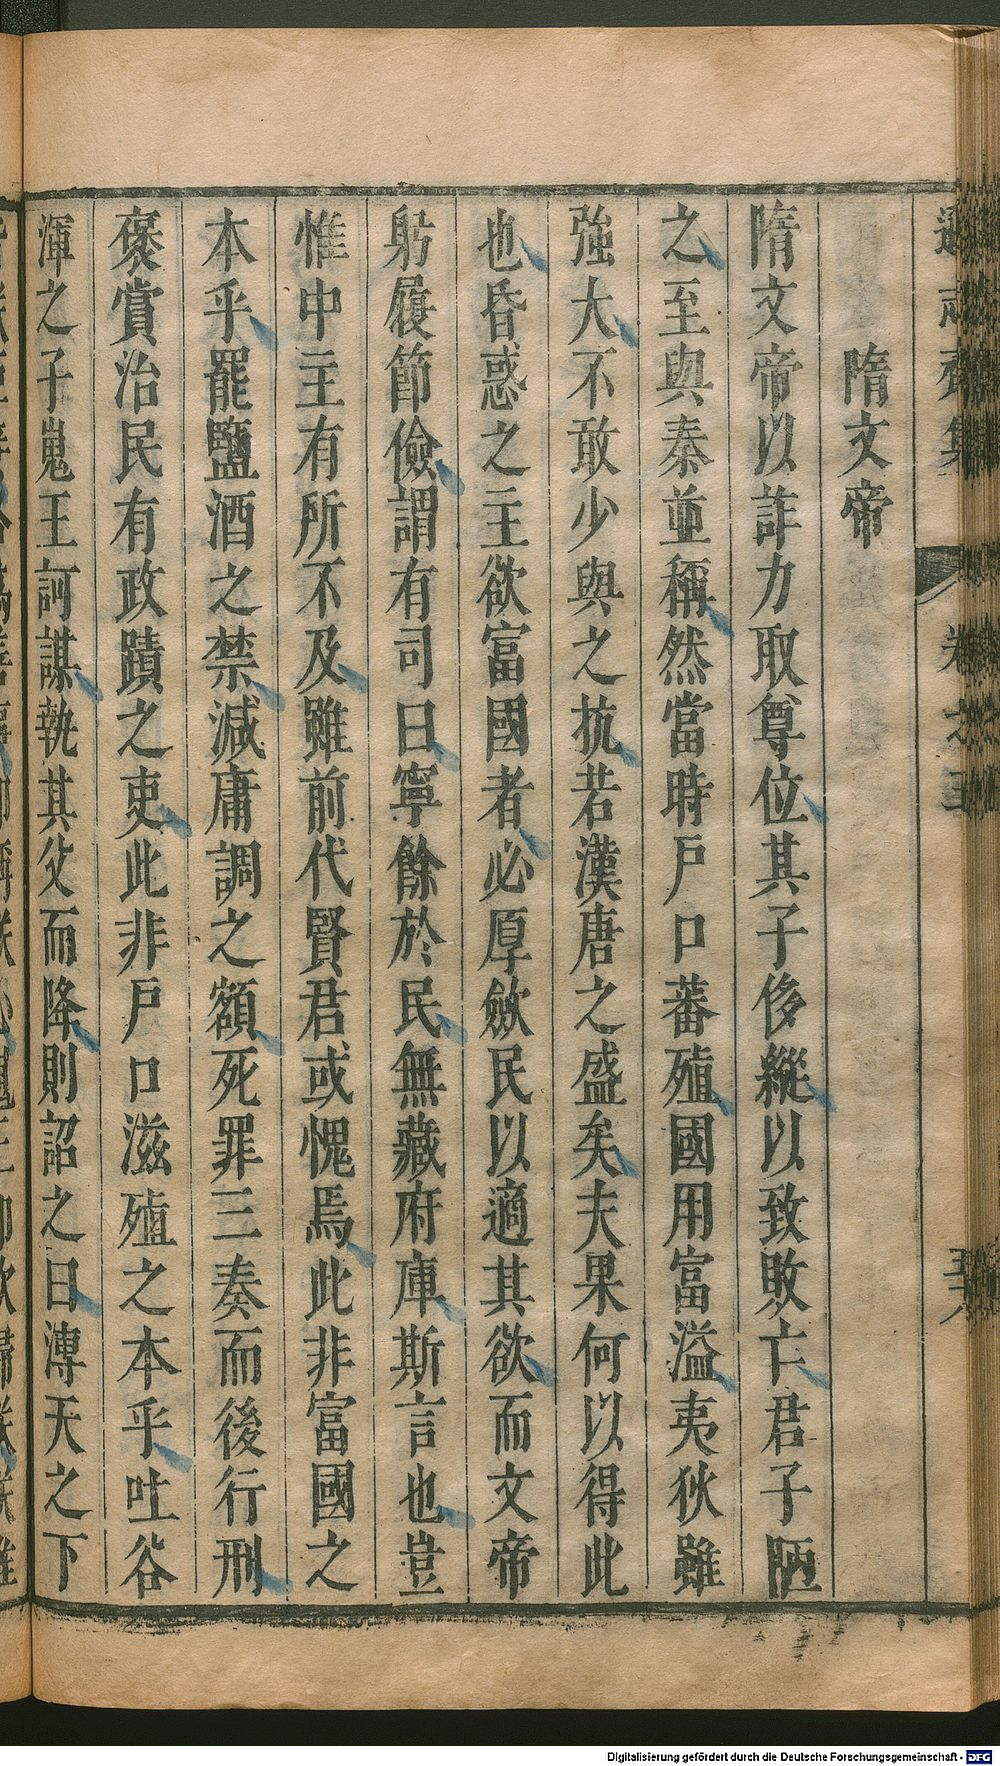 隋文帝
隋文帝以詐力取尊位其子侈縱以致敗亡君子陋
之至與秦並稱然當時戶口蕃殖國用富溢夷狄雖
強大不敢少與之抗若漢唐之盛矣夫果何以得此
也昏惑之主欲富國者必厚斂民以適其欲而文帝
躬履節儉謂有司曰寧餘於民無藏府庫斯言也豈
惟中主有所不及雖前代賢君或愧焉此非富國之
本乎罷鹽酒之禁減庸調之額死罪三奏而後行刑
褒賞治民有政蹟之吏此非戶口滋殖之本乎吐谷
渾之子嵬王訶謀執其父而降則詔之曰溥天之下
卷之五
Digitalisierung gefördert durch die Deutsche Forschungsgemeinschaft - DFG